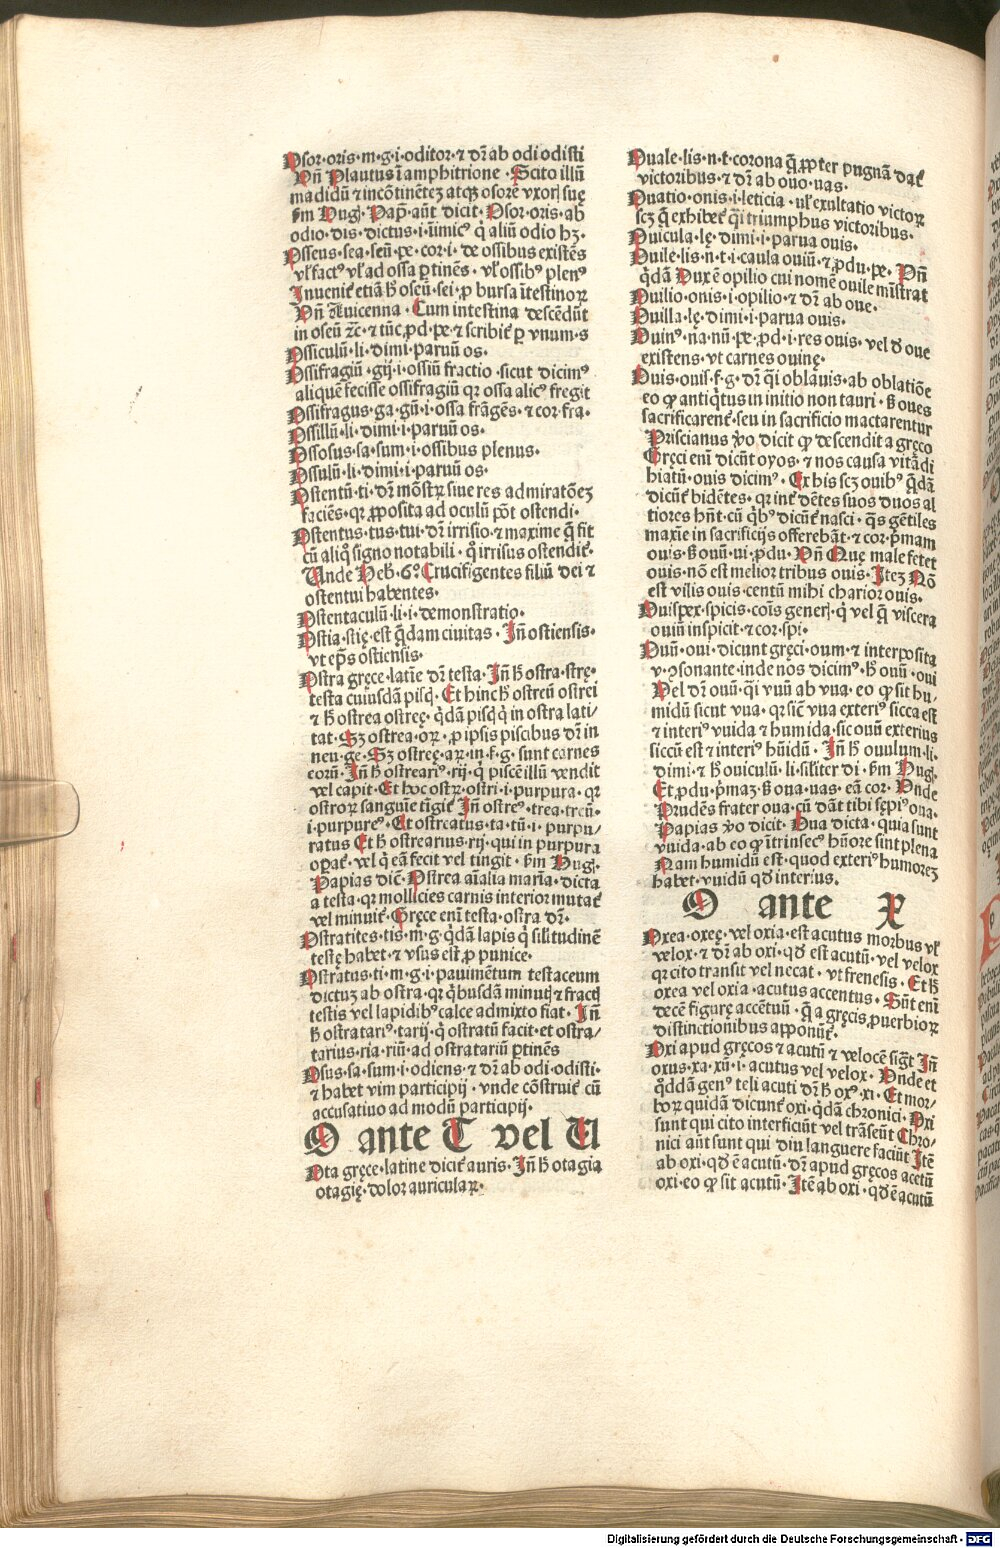 Osor·oris·m·g·i·oditor·⁊ dr̄ ab odi odisti
Vn̄ Plautus ī amphitrione ·Scito illū
madidū ⁊ incōtinētez atqꝫ osore vxorꝭ sue
ẜm Hugꝭ. Pap̄ aūt dicit· Osor·oris·ab
odio·dis·dictus·i·inimicꝰ q̇ aliū odio hꝫ·
Osseus·sea·seū·pe·cor·i·de ossibus existēs
vl̓ factꝰ vl̓ ad ossa ꝑtinēs· vl̓ ossibꝰ plenꝰ
Inuenit᷑ etiā h̄ oseū·sei·ꝓ bursa ītestinoꝝ
Vn̄ Auicenna ·Cum intestina descēdūt
in oseū ⁊c̄·⁊ tūc ꝓd·pe·⁊ scribit᷑ ꝑ vnum·s
Ossiculū·li·dimi·paruū os·
Ossifragiū·gij·i·ossiū fractio·sicut dicimꝰ
aliquē fecisse ossifragiū qꝛ ossa alicꝰ fregit
Ossifragus·ga·gū·i·ossa frāgēs·⁊ cor·fra·
Ossillū·li·dimi·i·paruū os·
Ossosus·sa·sum·i·ossibus plenus·
Ossulū·li·dimi·i·paruū os·
Ostentū·ti·dr̄ mōstrꝝ siue res admiratōeꝫ
faciēs·qꝛ ꝓposita ad oculū pōt ostendi·
Ostentus·tus·tui·dr̄ irrisio·⁊ maxime q̄ fit
cū aliq̊ signo notabili· q̊ irrisus ostendit᷑·
Unde Heb̓·6º Crucifigentes filiū dei ⁊
ostentui habentes·
Ostentaculū·li·i·demonstratio·
Ostia·stię·est q̄dam ciuitas· In̄ ostiensis·
vt ep̄s ostiensis·
Ostra gręce·latīe dr̄ testa·In̄ h̄ ostra·strę·
testa cuiusdā pisc̓· Et hinc h̄ ostreū ostrei
⁊ h̄ ostrea ostreę· q̄dā pisc̓ q̇ in ostra lati/
tat·Sꝫ ostrea·oꝝ· ꝓ ipsis piscibus dr̄ in
neu·ge·Sꝫ ostreę·aꝝ·in·f·g·sunt carnes
eorū·In̄ h̄ ostreariꝰ·rij·q̇ piscē illū vendit
vel capit·Et hoc ostrꝝ·ostri·i·purpura·qꝛ
ostroꝝ sanguīe tīgit᷑ In̄ ostreꝰ·trea·treū·
i·purpureꝰ·Et ostreatus·ta·tū·i·purpu/
ratus Et h̄ ostrearius·rij·qui in purpura
opat᷑·vel q̇ eā fecit vel tingit· ẜm Hugꝭ·
Papias dic̄·Ostrea aīalia marīa·dicta
a testa·qꝛ mollicies carnis interior mutat᷑
vel minuit᷑·Gręce enī testa·ostra dr̄·
Ostratites·tis·m·g·q̄dā lapis q̇ sil̓itudinē
testę habet·⁊ vsus est ꝓ punice·
Ostratus·ti·m·g·i·pauimētum testaceum
dictuꝫ ab ostra·qꝛ q̇busdā minutꝭ ⁊ fractꝭ
testis vel lapidibꝰ calce admixto fiat· In̄
h̄ ostratariꝰ·tarij·q̇ ostratū facit·et ostra/
tarius·ria·riū·ad ostratariū ꝑtinēs
Osus·sa·sum·i·odiens·⁊ dr̄ ab odi·odisti·
⁊ habet vim participij· vnde cōstruit᷑ cū
accusatiuo ad modū participij·
O ante T vel U
Ota gręce·latine dicit᷑ auris·In̄ h̄ otagia
otagię·dolor auriculaꝝ·
Ouale·lis·n·t·corona q̄ ꝓpter pugnā dat᷑
victoribus·⁊ dr̄ ab ouo·uas·
Ouatio·onis·i·leticia· vl̓ exultatio victoꝝ
scꝫ q̄ exhibet᷑ q̄i triumphus victoribus·
Ouicula·lę·dimi·i·parua ouis·
Ouile·lis·n·t·i·caula ouiū·⁊ ꝓdu·pe· Vn̄
q̄dā Dux ē opilio cui nomē ouile mīstrat
Ouilio·onis·i·opilio·⁊ dr̄ ab oue·
Ouilla·lę·dimi·i·parua ouis·
Ouinꝰ·na·nū·pe·ꝓd·i·res ouis· vel d̓ oue
existens·vt carnes ouinę·
Ouis·ouiſ·f·g·dr̄ q̄i oblauis·ab oblatiōe
eo ꝙ antiq̇tus in initio non tauri· s̓ oues
sacrificarent᷑·seu in sacrificio mactarentur
Priscianus v̓o dicit ꝙ descendit a gręco
Gręci enī dicūt oyos·⁊ nos causa vitādi
hiatū·ouis dicimꝰ· Ex his scꝫ ouibꝰ q̄dā
dicūt᷑ bidētes·qꝛ int̓ dētes suos duos al
tiores hn̄t·cū q̇bꝰ dicūt᷑ nasci· q̄s gētiles
maxīe in sacrificijs offerebāt·⁊ cor·p̄mam
ouis·s̓ ouū·ui·ꝓdu· Vn̄ Quę male fetet
ouis·nō est melior tribus ouis· Iteꝫ Nō
est vilis ouis·centū mihi charior ouis·
Ouispex·spicis·cōis generꝭ·q̇ vel q̄ viscera
ouiū inspicit·⁊ cor·spi·
Ouū·oui·dicunt gręci·oum·⁊ interposita
v·ↄsonante·inde nos dicimꝰ·h̄ ouū·oui
Vel dr̄ ouū·q̄i vuū ab vua·eo ꝙ sit hu/
midū sicut vua·qꝛ sic̄ vua exteriꝰ sicca est
⁊ interiꝰ vuida ⁊ humida·sic ouū exterius
siccū est ⁊ interiꝰ hūidū· In̄ h̄ ouulum·li·
dimi·⁊ h̄ ouiculū·li·sil̓iter di·ẜm Hugꝭ·
Et ꝓdu·p̄maꝫ·s̓ oua·uas·eā cor· Vnde
Prudēs frater oua·cū dāt tibi sępiꝰ oua·
Papias v̓o dicit· Oua dicta·quia sunt
vuida·ab eo ꝙ ītrinsecꝰ hūore sint plena
Nam humidū est·quod exteriꝰ humoreꝫ
habet·vuidū qd̓ interius.
O ante X
Oxea·oxeę·vel oxia·est acutus morbus vl̓
velox·⁊ dr̄ ab oxi·qd̓ est acutū·vel velox
qꝛ cito transit vel necat· vt frenesis· Et h̄
oxea vel oxia·acutus accentus· Sūt enī
decē figurę accētuū· q̄ a gręcis ꝓuerbioꝝ
distinctionibus apponūt᷑·
Oxi apud gręcos ⁊ acutū ⁊ velocē sigt̄ In̄
oxus·xa·xū·i·acutus vel velox· Vnde et
q̄ddā genꝰ teli acuti dr̄ h̄ oxꝰ·xi· Et mor/
boꝝ quidā dicunt᷑ oxi·q̄dā chronici· Oxi
sunt qui cito interficiūt vel trāseūt Chro/
nici aūt sunt qui diu languere faciūt Itē
ab oxi·qd̓ ē acutū·dr̄ apud gręcos acetū
oxi·eo ꝙ sit acutū·Itē ab oxi·qd̓ ē acutū
Digitalisierung gefördert durch die Deutsche Forschungsgemeinschaft · DFG